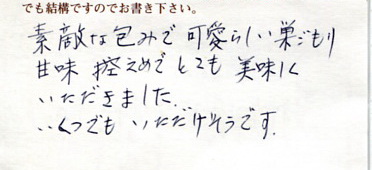 でも結構ですのでお書き下さい。
素敵な包みで 可愛らしい巣ごもり
甘味 控えめで とても 美味しく
いただきました.
いくつでも いただけそうです.